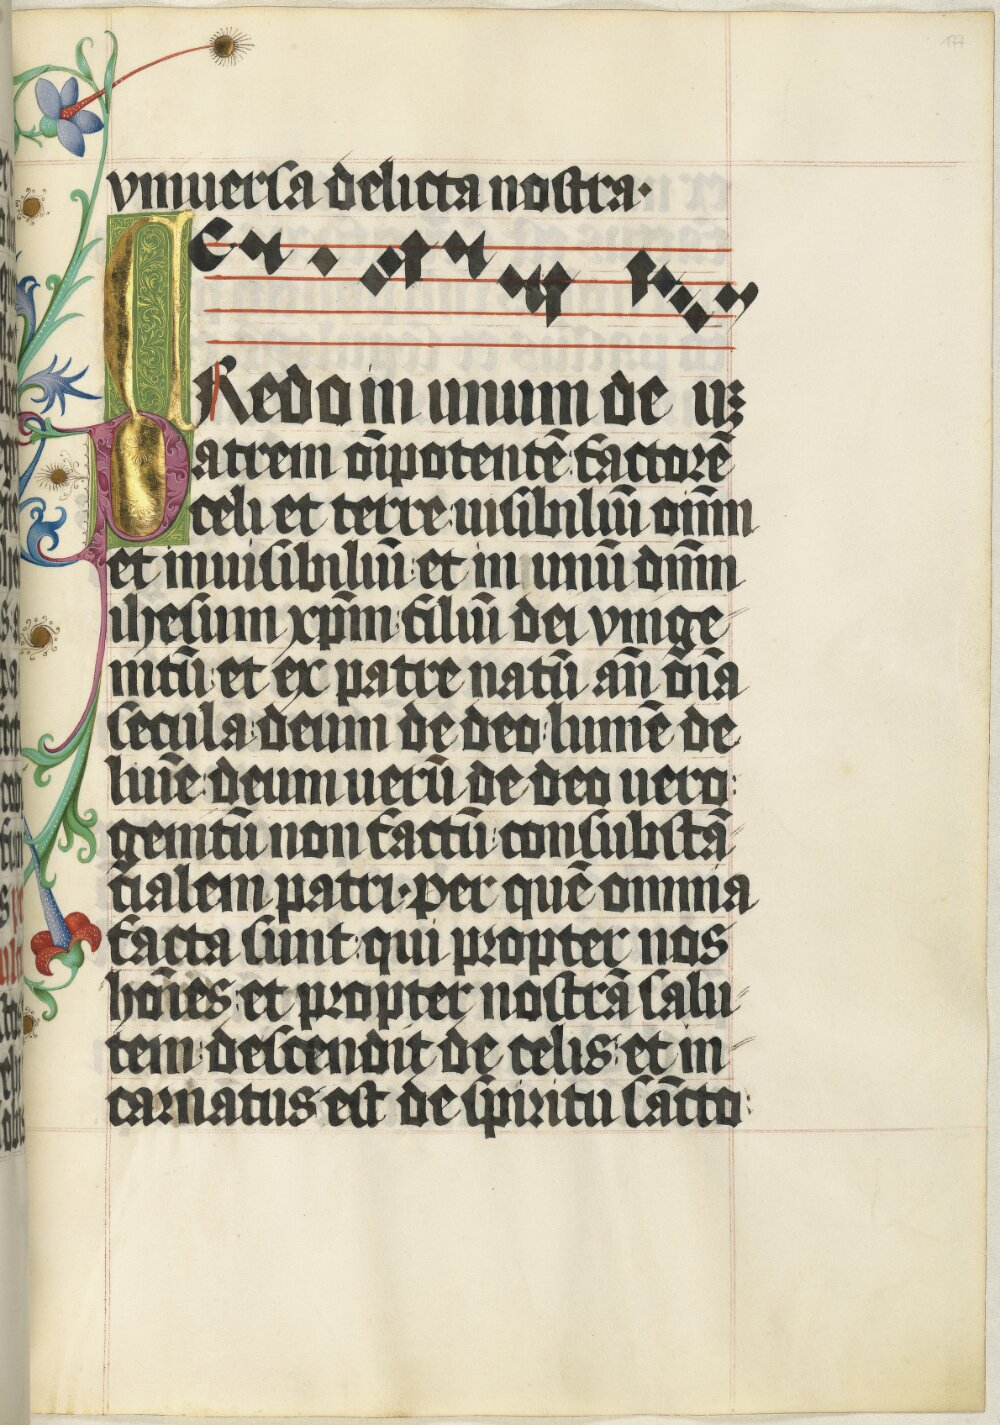 177
vniuersa delicta nostra·
Redo in unum de uꝫ
atrem om̄ipotentē factorē
celi et terre uisibiliū oīm̄
et inuisibiliū et in unū dn̄m
ihesum xp̄m filiū dei vnige
nitū et ex patre natū an̄ oīa
secula deum de deo lumē de
luīe deum uerū de deo uero
genitū non factū consubstā
cialem patri per quē omnia
facta sunt qui propter nos
hoīes et propter nostrā salu
tem descendit de celis et in
carnatus est de spiritu sācto